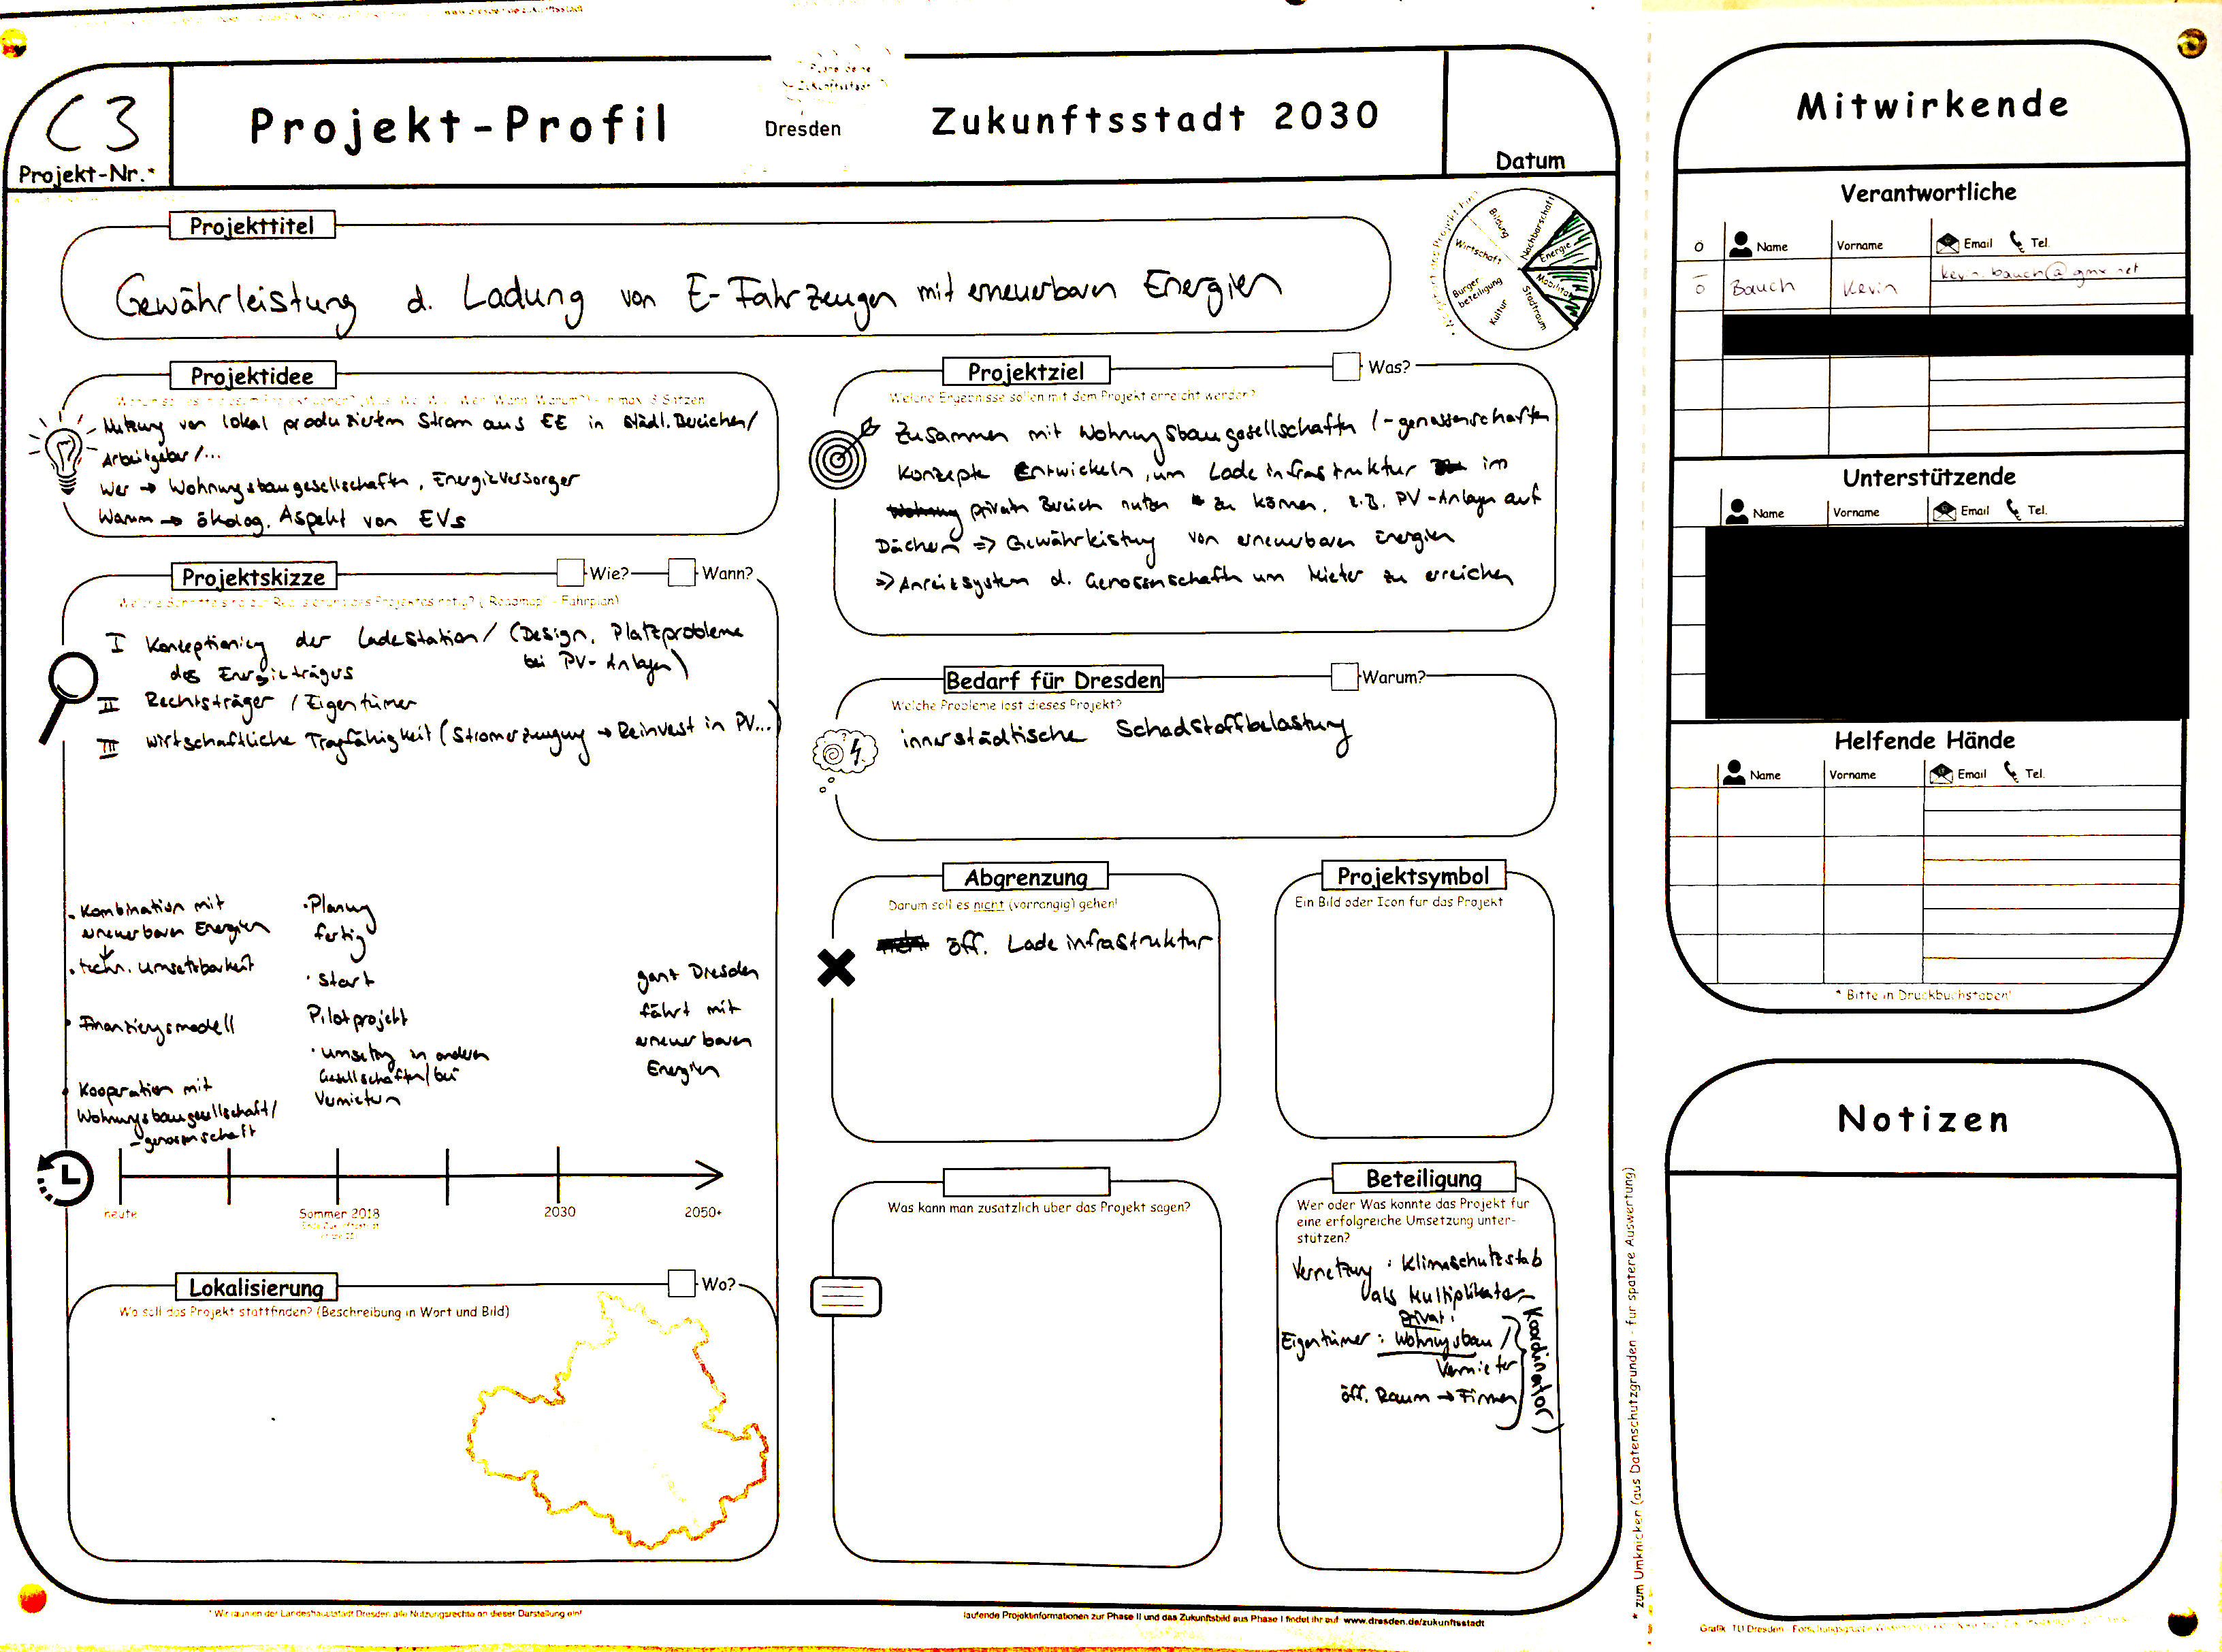 www.dresden.de/zukunftsstadt
C3
Projekt-Nr.*
Projekt-Profil
Plane deine
Zukunftsstadt
Dresden
Zukunftsstadt 2030
Datum
Projekttitel
Gewährleistung d. Ladung von E-Fahrzeugen mit erneuerbaren Energien
Bildung
Nachbarschaft
Energie
Mobilität
Stadtraum
Kultur
Bürger
beteiligung
Wirtschaft
Projektidee
- Nutzung von lokal produziertem Strom aus EE in städt. Bereichen/
Arbeitgeber/...
Wer → Wohnungsbaugesellschaften, Energieversorger
Warum → ökolog. Aspekt von EVs
Projektskizze
Wie?
Wann?
Welche Schritte sind zur Realisierung des Projektes nötig? ("Roadmap" - Fahrplan)
I Konzeptionierung der Ladestation/ (Design, Platzprobleme
des Energieträgers bei PV-Anlagen)
II Rechtsträger / Eigentümer
III wirtschaftliche Tragfähigkeit (Stromerzeugung → Reinvest in PV...)
• Kombination mit
erneuerbaren Energien
↓
• techn. Umsetzbarkeit
• Finanzierungsmodell
• Kooperation mit
Wohnungsbaugesellschaft/
-genossenschaft
• Planung
fertig
• Start
Pilotprojekt
• Umsetzung in anderen
Gesellschaften/bei
Vermietern
ganz Dresden
fährt mit
erneuerbaren
Energien
heute
Sommer 2018
2030
2050+
Lokalisierung
Wo?
Wo soll das Projekt stattfinden? (Beschreibung in Wort und Bild)
Projektziel
Was?
Welche Ergebnisse sollen mit dem Projekt erreicht werden?
Zusammen mit Wohnungsbaugesellschaften /-genossenschaften
Konzepte Entwickeln, um Ladeinfrastruktur im
privaten Bereich nutzen zu können. z.B. PV-Anlagen auf
Dächern => Gewährleistung von erneuerbaren Energien
=> Anreizsystem d. Genossenschaften um Mieter zu erreichen
Bedarf für Dresden
Warum?
Welche Probleme löst dieses Projekt?
innerstädtische Schadstoffbelastung
Abgrenzung
Darum soll es nicht (vorrangig) gehen!
öff. Ladeinfrastruktur
Projektsymbol
Ein Bild oder Icon für das Projekt
Was kann man zusätzlich über das Projekt sagen?
Beteiligung
Wer oder Was könnte das Projekt für
eine erfolgreiche Umsetzung unter-
stützen?
Vernetzung : Klimaschutzstab
als Multiplikator
privat:
Eigentümer : Wohnungsbau /
Vermieter
öff. Raum → Firmen
Koordinator
* Wir räumen der Landeshauptstadt Dresden alle Nutzungsrechte an dieser Darstellung ein!
laufende Projektinformationen zur Phase II und das Zukunftsbild aus Phase I findet ihr auf www.dresden.de/zukunftsstadt
* zum Umknicken (aus Datenschutzgründen - für spätere Auswertung)
Mitwirkende
Verantwortliche
Name Vorname Email Tel.
Bauch Kevin kevin.bauch@gmx.net
Unterstützende
Name Vorname Email Tel.
Helfende Hände
Name Vorname Email Tel.
* Bitte in Druckbuchstaben!
Notizen
Grafik: TU Dresden